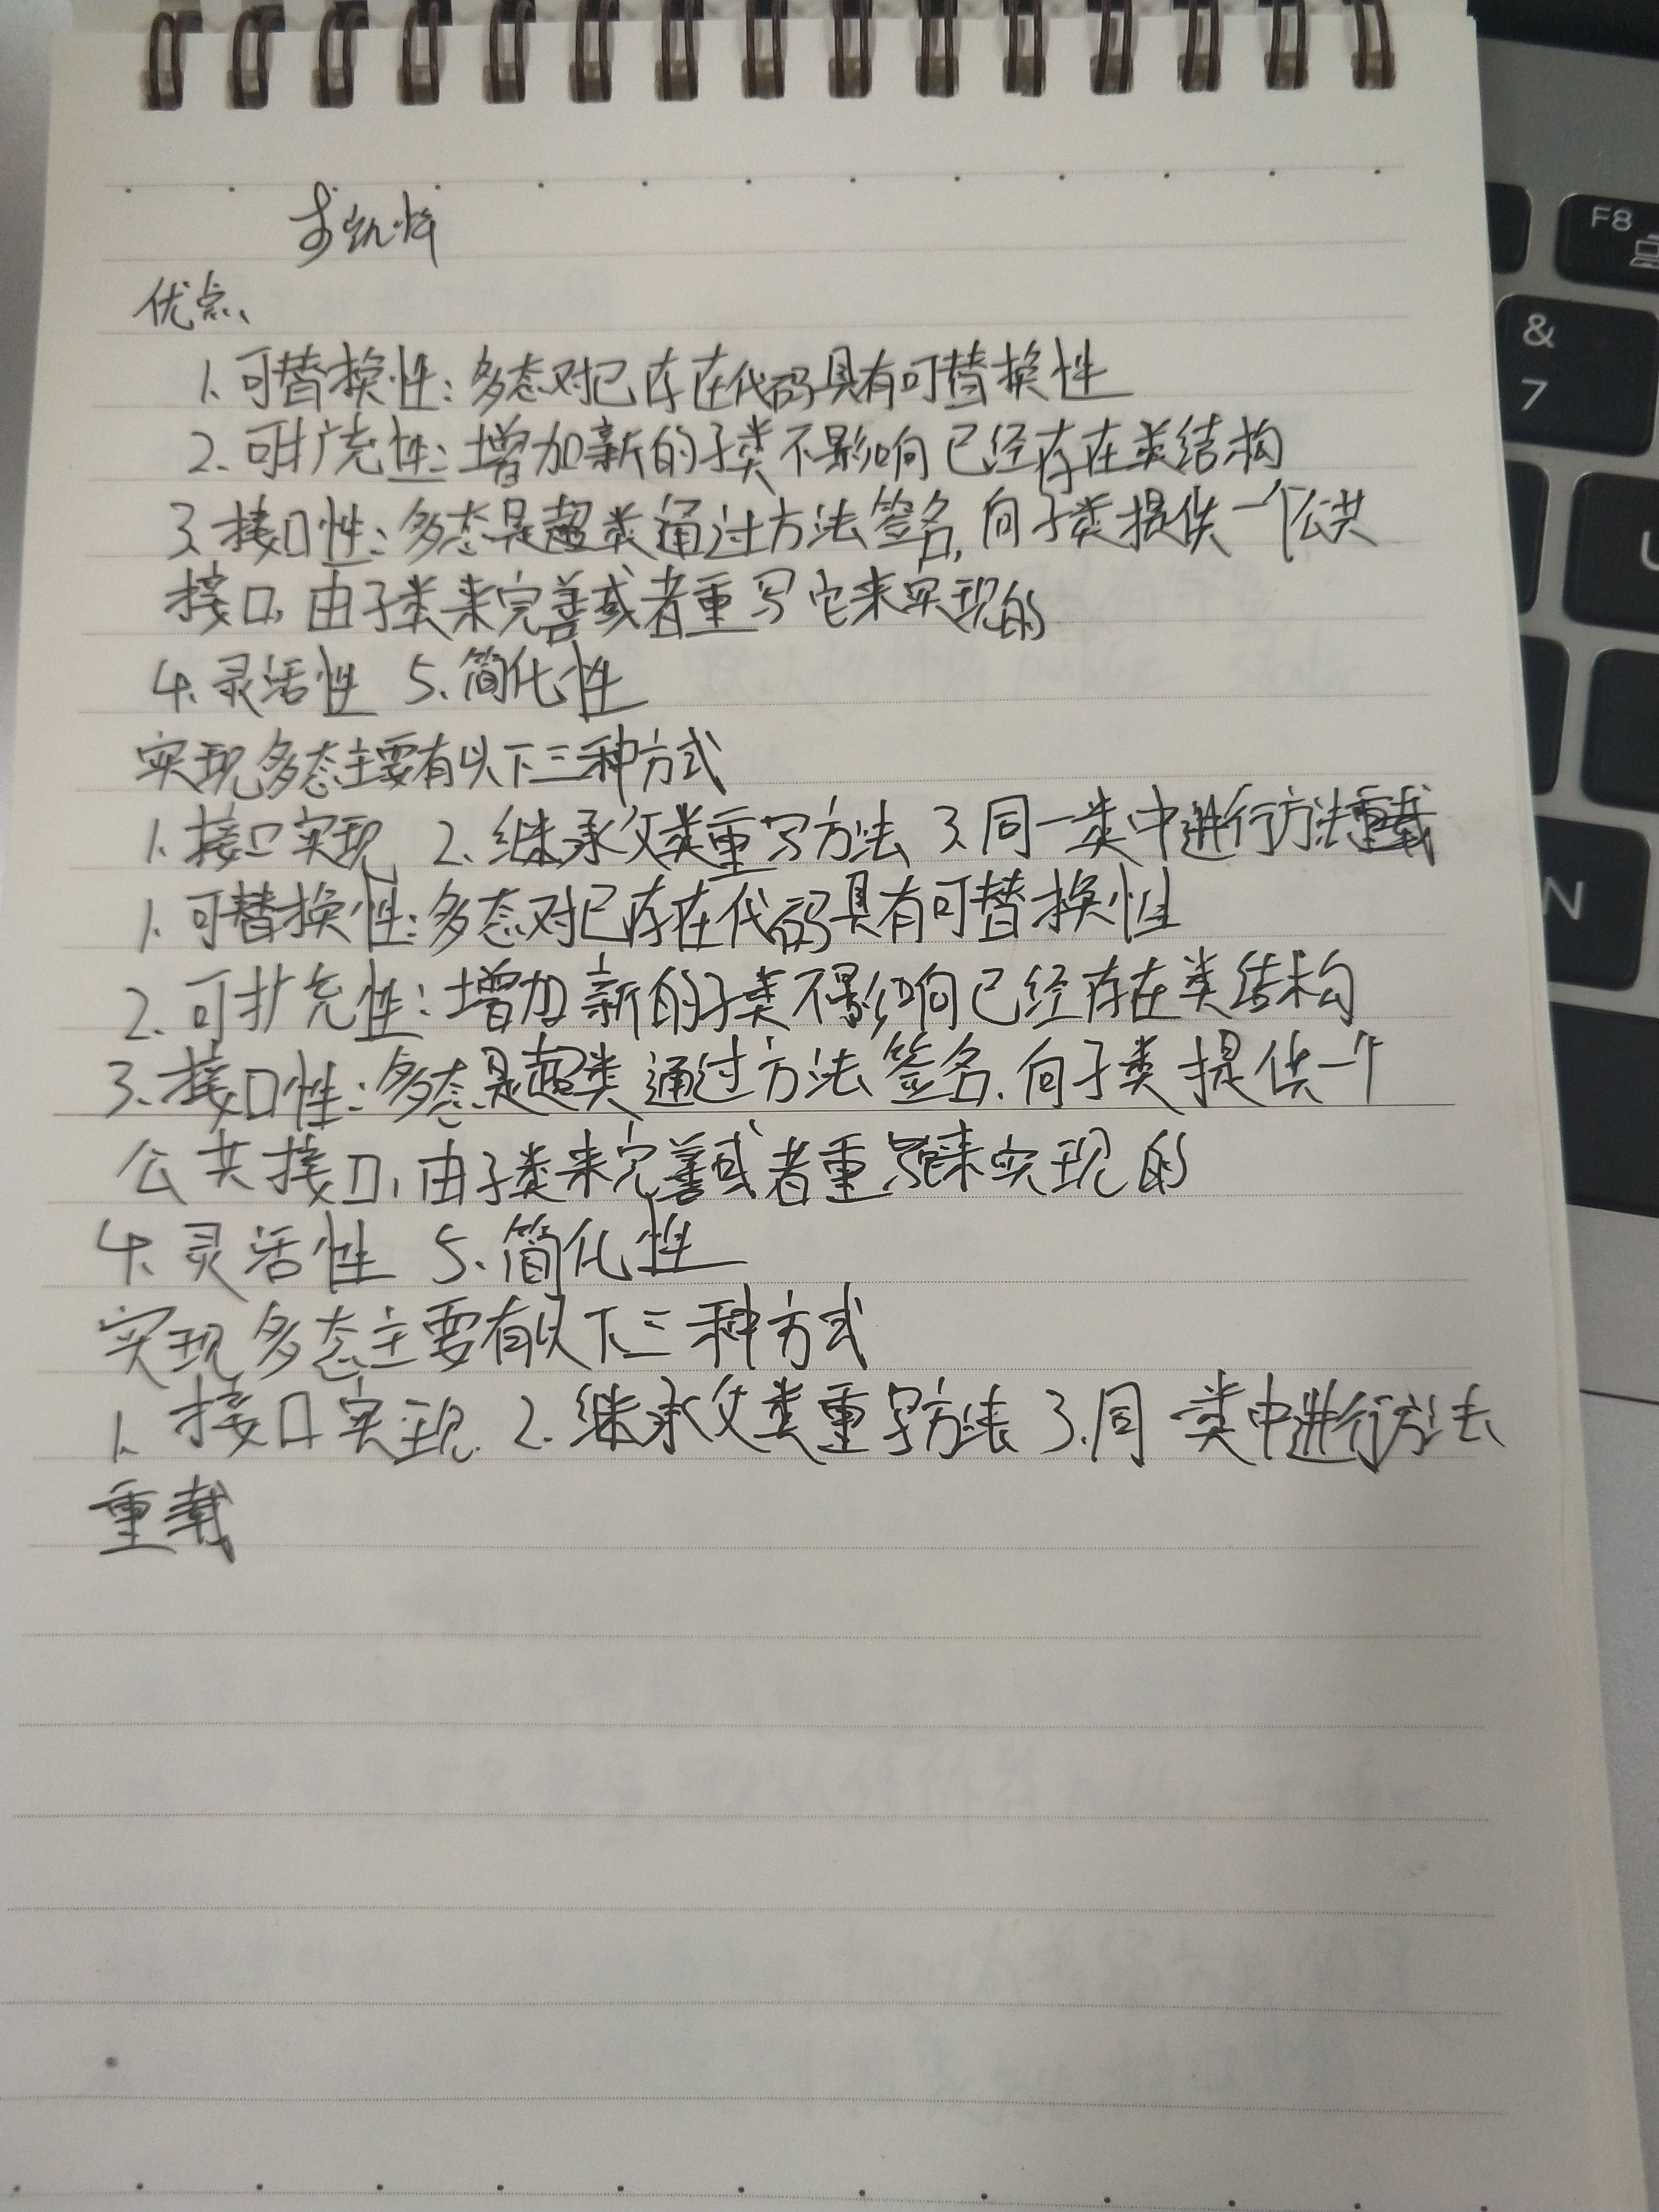 优点、
1、可替换性：多态对已存在代码具有可替换性
2、可扩充性：增加新的子类不影响已经存在类结构
3、接口性：多态是超类通过方法签名，向子类提供一个公共
接口，由子类来完善或者重写它来实现的
4、灵活性 5、简化性
实现多态主要有以下三种方式
1、接口实现 2、继承父类重写方法 3、同一类中进行方法重载
1、可替换性：多态对已存在代码具有可替换性
2、可扩充性：增加新的子类不影响已经存在类结构
3、接口性：多态是超类通过方法签名，向子类提供一个
公共接口，由子类来完善或者重写它来实现的
4、灵活性 5、简化性
实现多态主要有以下三种方式
1、接口实现 2、继承父类重写方法 3、同一类中进行方法
重载
F8
&
7
U
N